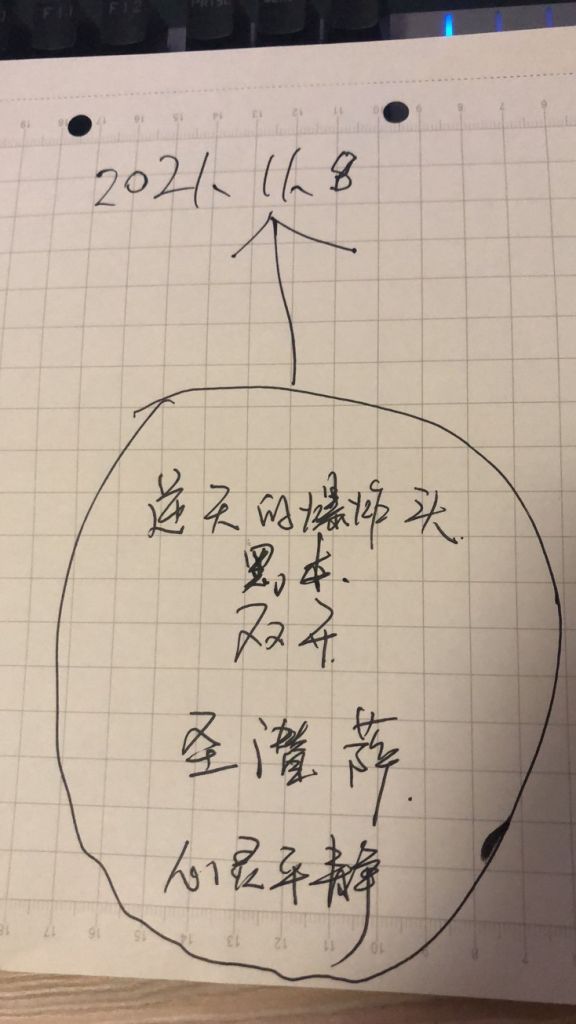 F11 F12
2021.11.8
逆天的爆炸头
黑本.
双开
圣 薛.
心灵平静